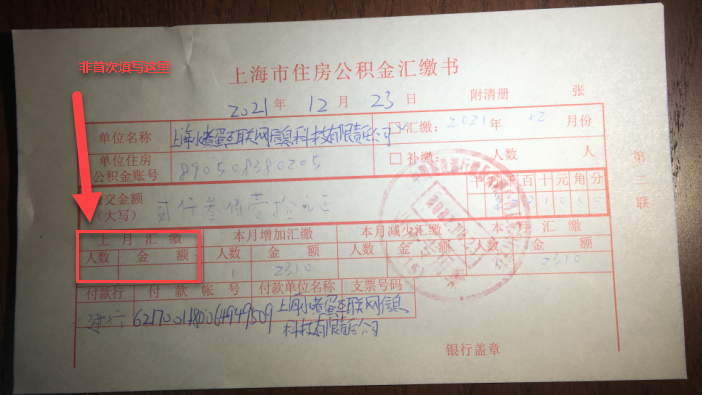 非首次填写这里
上海市住房公积金汇缴书
2021年 12月 23日 附清册 张
单位名称 上海小猪蛋互联网信息科技有限责任公司 汇缴: 2021年 12月份
单位住房公积金账号 890508380205 补缴: 人数 人
缴交金额(大写) 贰仟叁佰壹拾元正 千百十元角分
第二联
上月汇缴 本月增加汇缴 本月减少汇缴 本月汇缴
人数 金额 人数 金额 人数 金额 人数 金额
1 2310 2310
付款行 付款帐号 付款单位名称 支票号码
6217001180064949509 上海小猪蛋互联网信息
科技有限责任公司
银行盖章